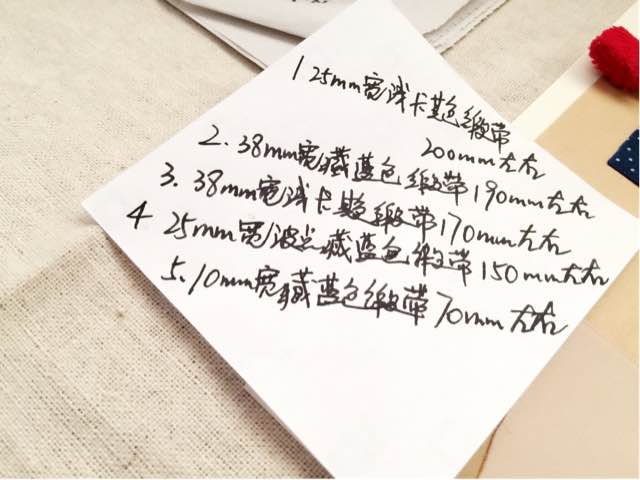 1 25mm宽浅卡其色缎带
200mm左右
2. 38mm宽藏蓝色缎带190mm左右
3. 38mm宽浅卡其色缎带170mm左右
4 25mm宽波点藏蓝色缎带150mm左右
5. 10mm宽藏蓝色缎带70mm左右